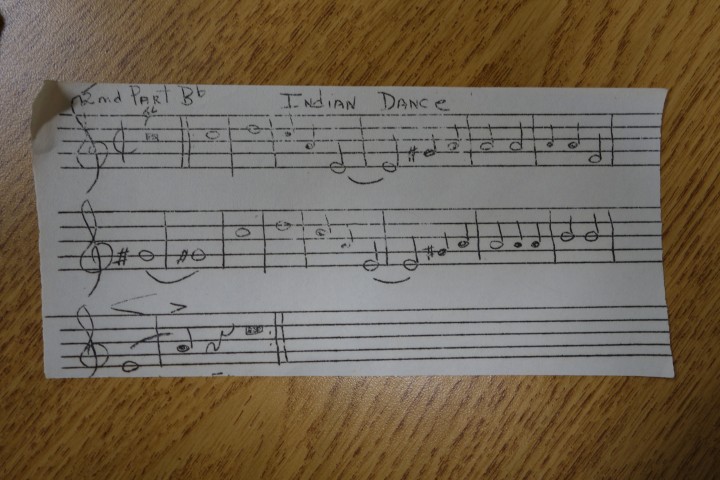 2nd PART Bb INDIAN DANCE